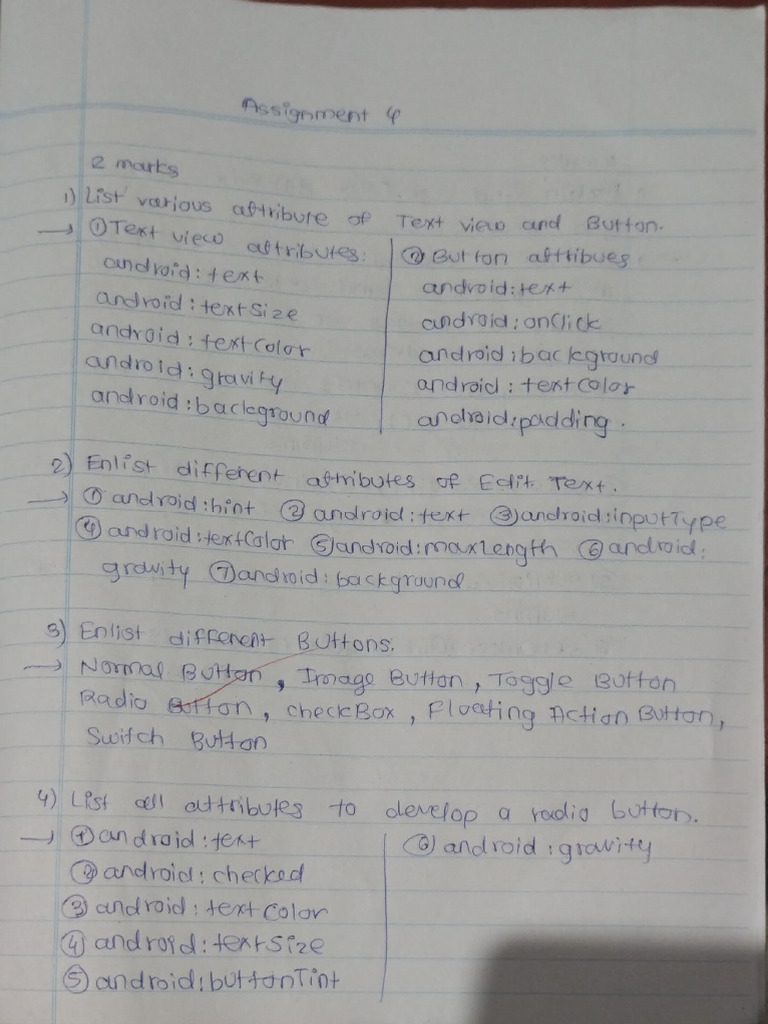 Assignment 4
2 marks
1) List various attribute of Text view and Button.
→ ① Text view attributes:
android:text
android:textSize
android:textColor
android:gravity
android:background
② Button attribues
android:text
android:onClick
android:background
android:textColor
android:padding.
2) Enlist different attributes of Edit Text.
→ ① android:hint ② android:text ③ android:inputType
④ android:textColor ⑤ android:maxLength ⑥ android:
gravity ⑦ android:background
3) Enlist different Buttons.
→ Normal Button, Image Button, Toggle Button
Radio Button, checkBox, Floating Action Button,
Switch Button
4) List all attributes to develop a radio button.
→ ① android:text
② android:checked
③ android:textColor
④ android:textSize
⑤ android:buttonTint
⑥ android:gravity